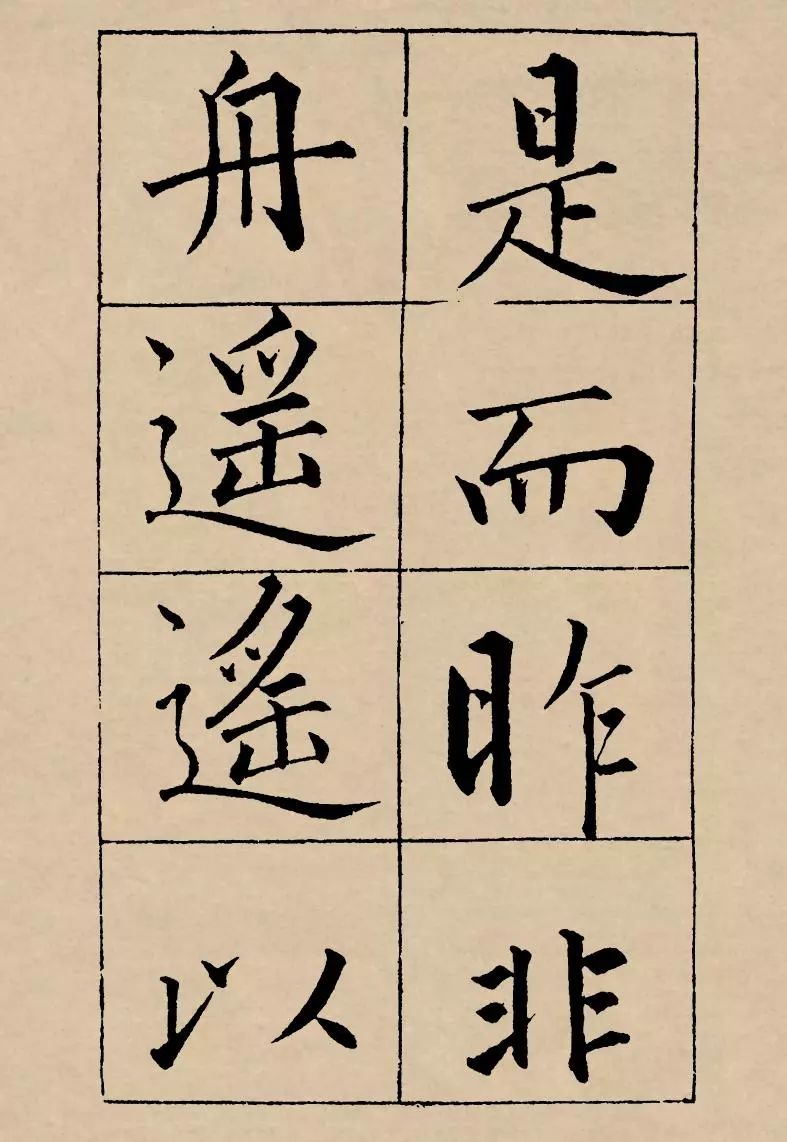 是而昨非
舟遥遥以